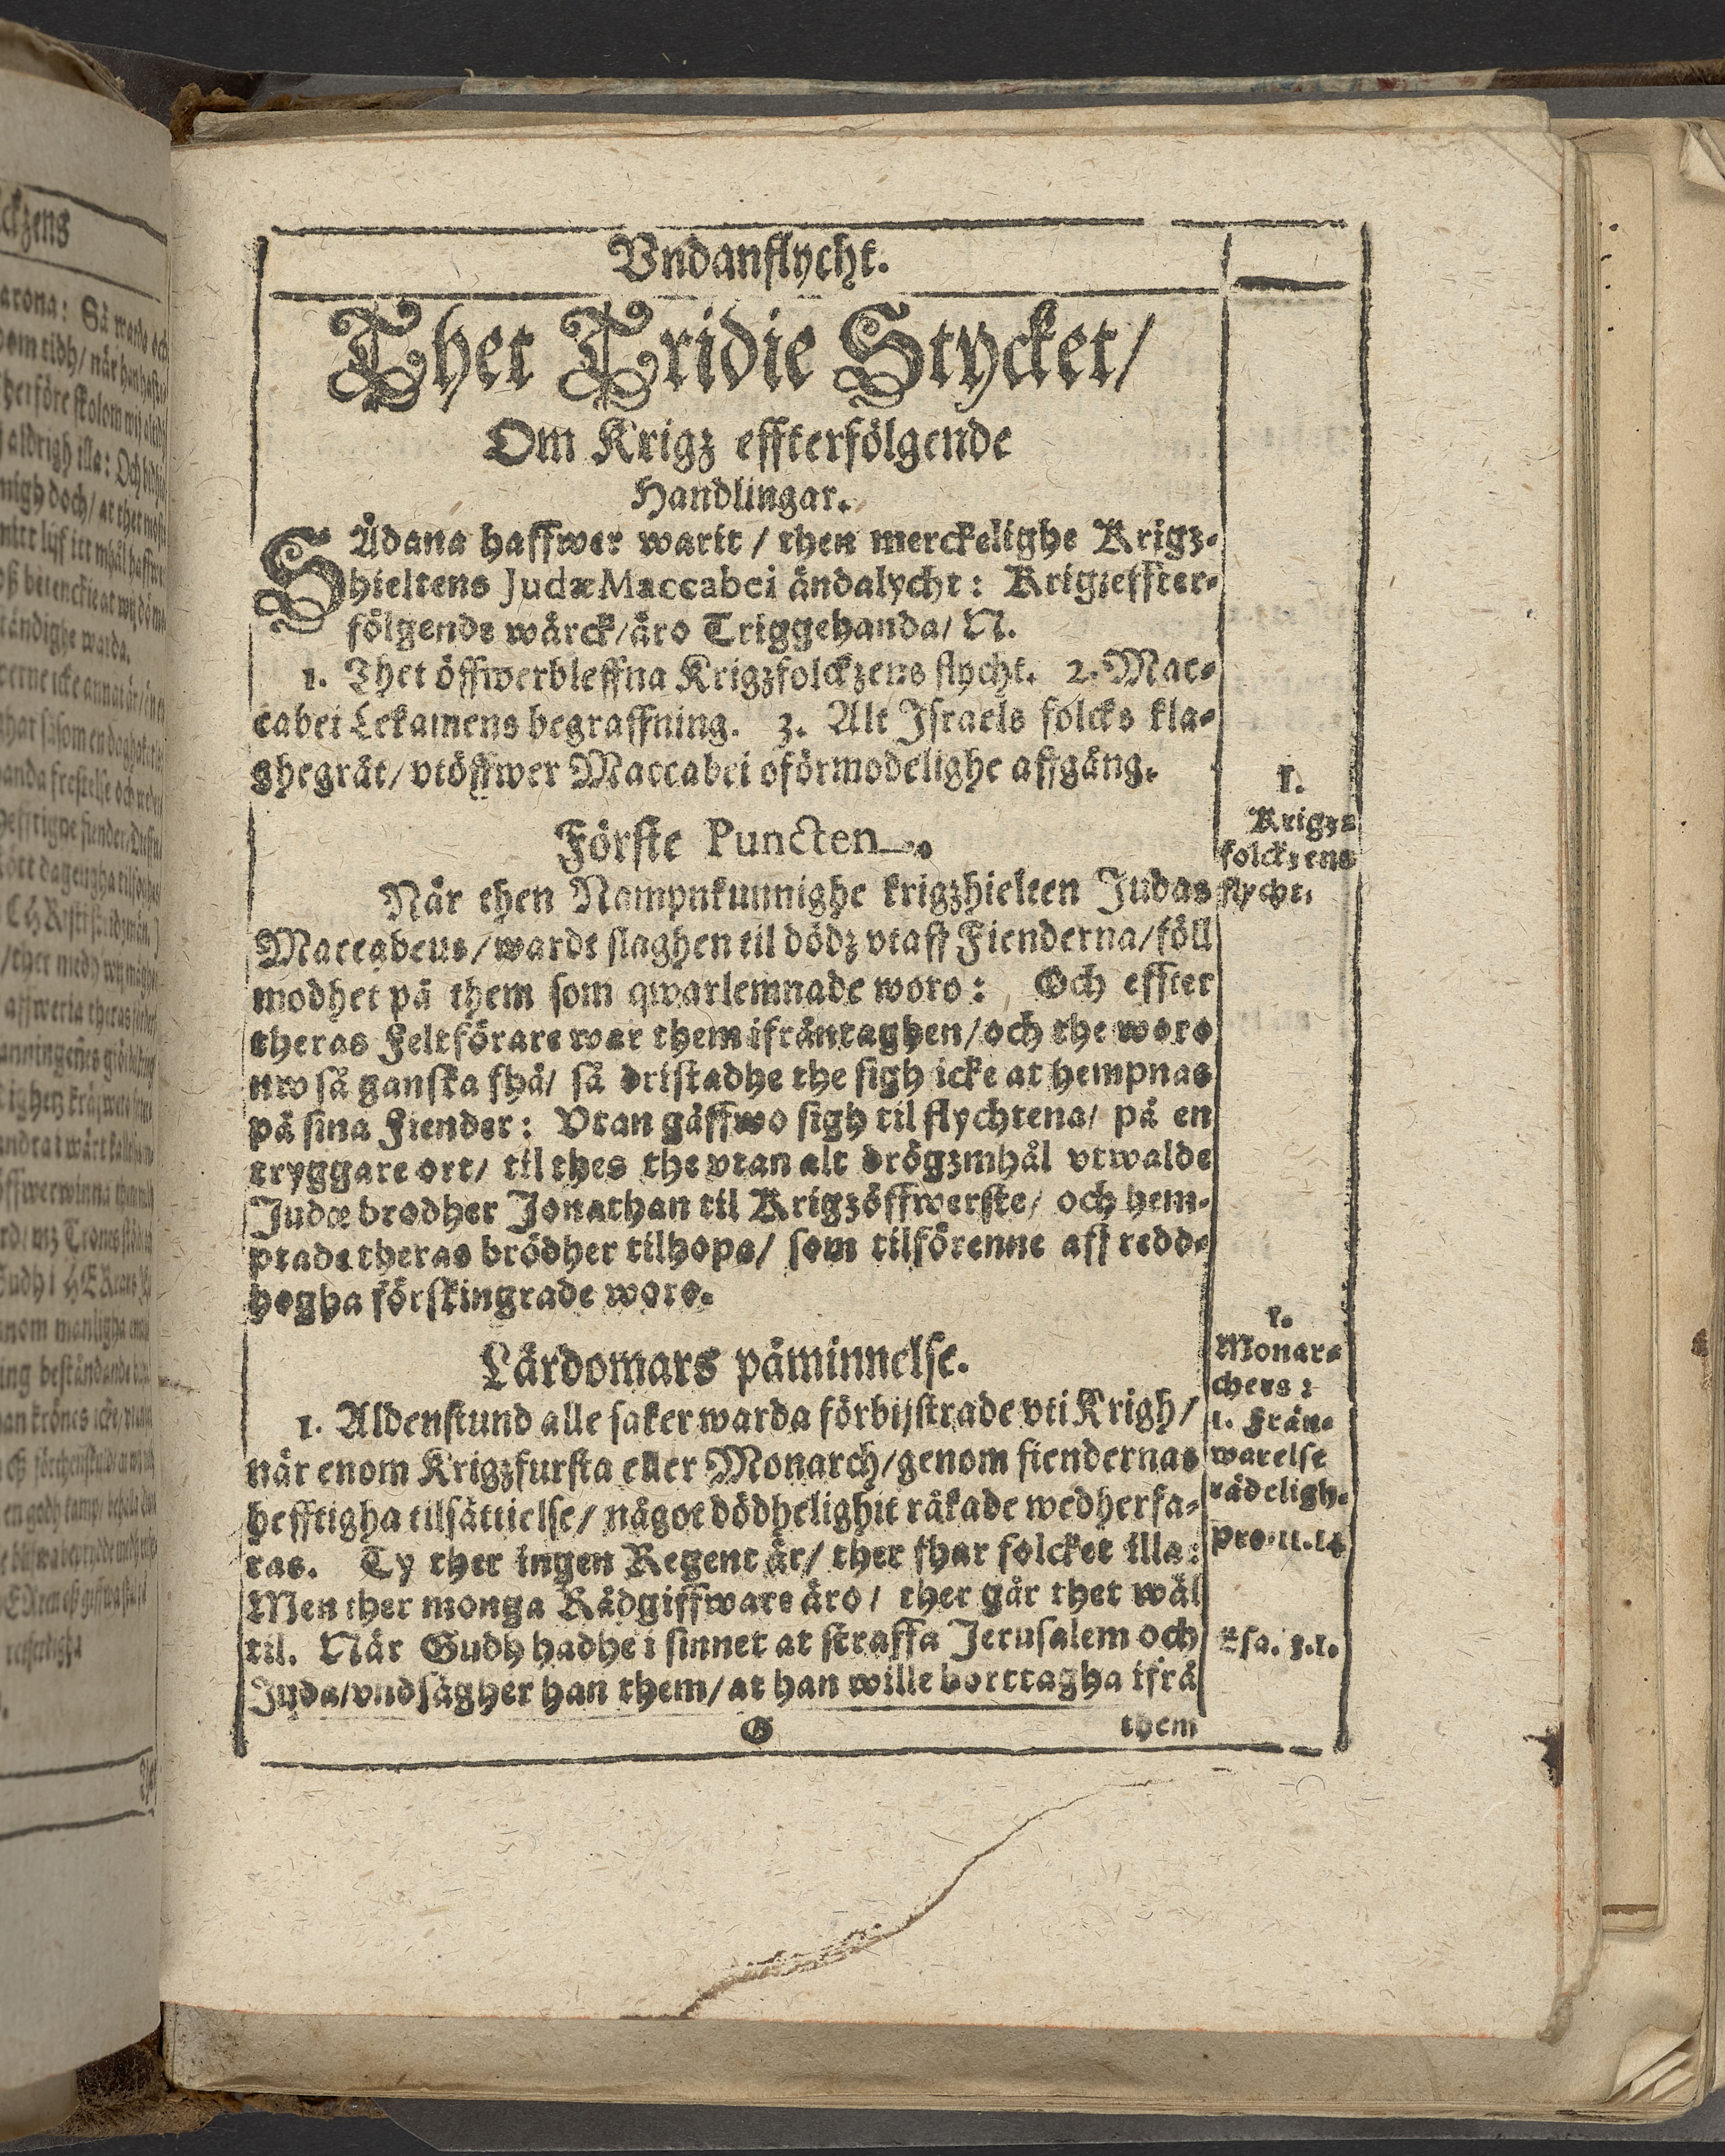 Vndanflycht.
Thet Tridie Stycket/
Om Krigz effterfölgende
Handlingar.
SÅdana haffwer warit / then merckelighe Krigz-
hieltens Judæ Maccabei ändalycht: Krigzeffter-
fölgende wärck/äro Triggehanda/ N.
1. Thet öffwerbleffna Krigzfolckzens flycht. 2. Mac-
cabei Lekamens begraffning. 3. Alt Israels folcks kla-
ghegråt/ vtöffwer Maccabei oförmodelighe affgång.
Förste Puncten.
När then Nampnkunnighe krigzhielten Judas
Maccabeus/wardt slaghen til dödz vtaff Fienderna/föll
modhet på them som qwarlemnade woro: Och effter
theras Feltförare war them ifråntaghen/och the woro
nw så ganska fhå/ så dristadhe the sigh icke at hempnas
på sina Fiender: Vtan gåffwo sigh til flychtena/ på en
tryggare ort/ til thes the vtan alt drögzmhål vtwalde
Judæ brodher Jonathan til Krigzöffwerste/ och hem-
ptade theras brödher tilhopa/ som tilförenne aff redd-
hogha förskingrade woro.
Lärdomars påminnelse.
1. Aldenstund alle saker warda förbijstrade vti Krigh/
när enom Krigzfursta eller Monarch/genom fiendernas
hefftigha tilsättielse/ något dödhelighit råkade wedherfa-
ras. Ty ther ingen Regent är/ ther fhar folcket illa:
Men ther monga Rådgiffware äro/ ther går thet wäl
til. När Gudh hadhe i sinnet at straffa Jerusalem och
Juda/vndsägher han them/at han wille borttagha ifrå
G them
1.
Krigz-
folckzens
flycht.
1.
Monar-
chers:
1. Från-
warelse
rädeligh.
Pro.11.14
Esa. 3.1.